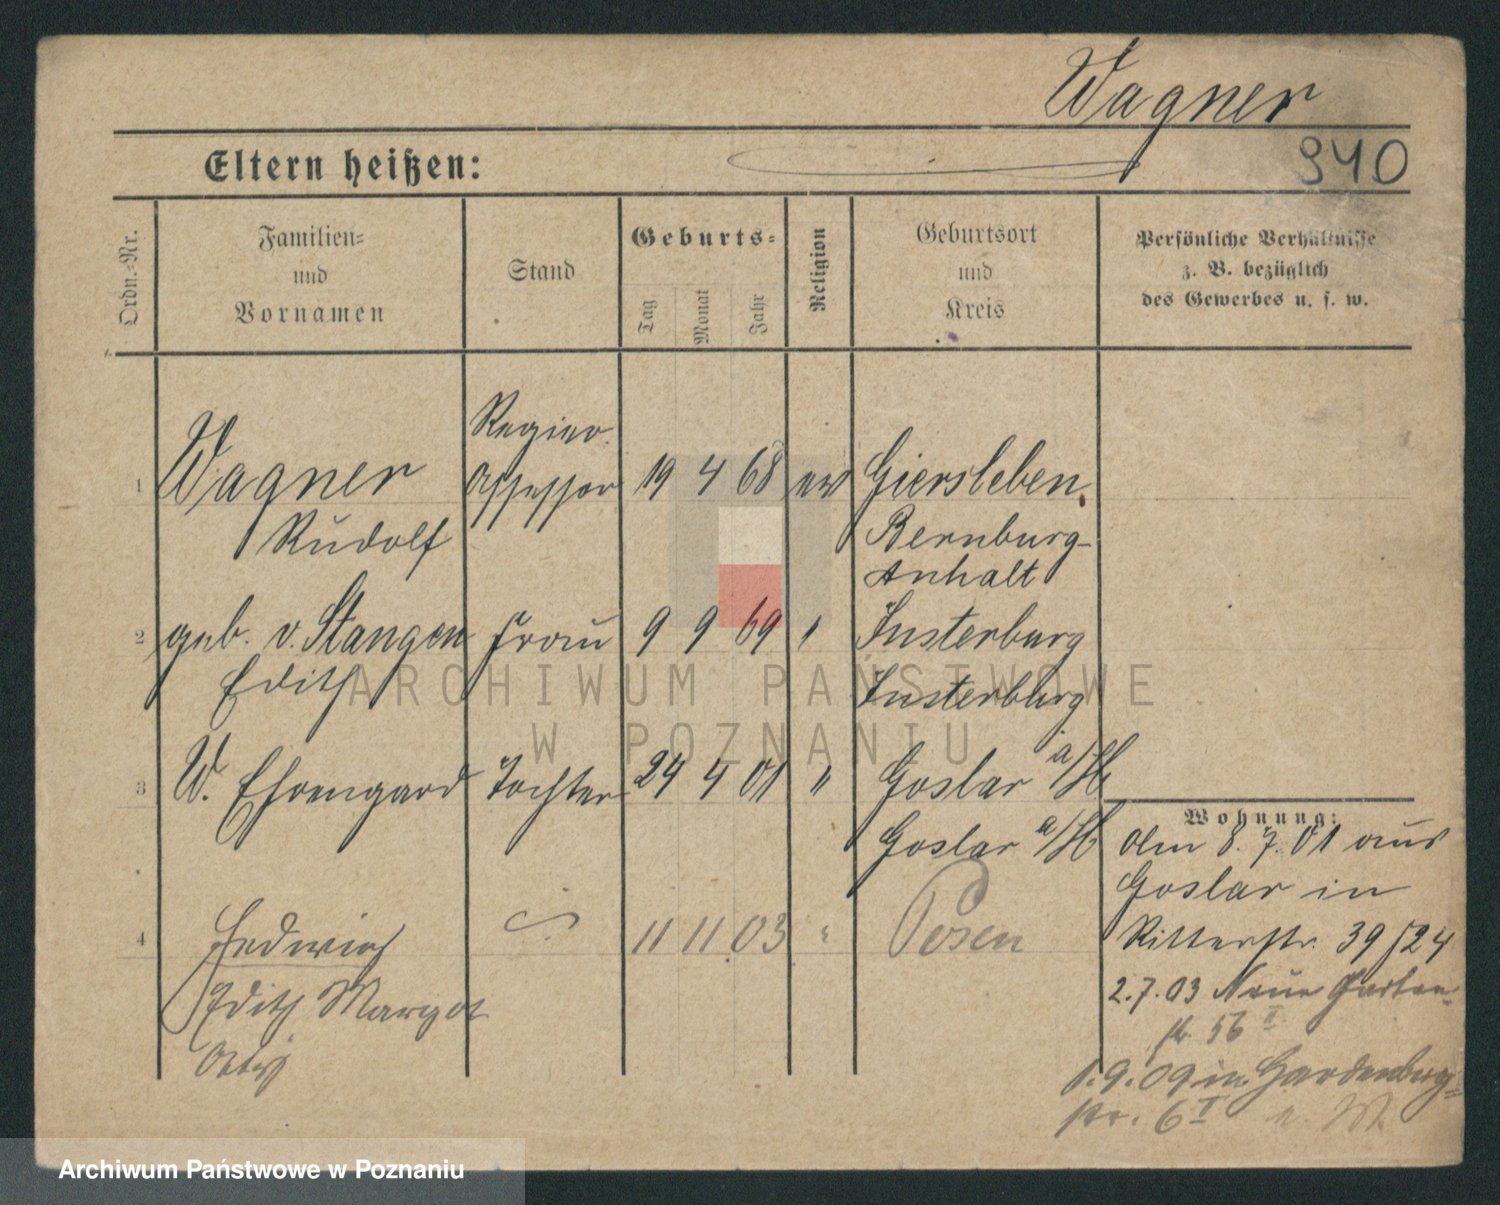 Wagner
940
Eltern heißen:
Ordn.-Nr.
Familien-
und
Vornamen
Stand
Geburts-
Tag
Monat
Jahr
Religion
Geburtsort
und
Kreis
Persönliche Verhältnisse
z. B. bezüglich
des Gewerbes u. s. w.
Regier.
1 Wagner Assessor 19 4 68 ev Giersleben
Rudolf Bernburg-
Anhalt
2 geb. v. Stangen Frau 9 9 69 " Insterburg
Edith Insterburg
3 W. Ehrengard Tochter 24 4 01 " Goslar a/H
Goslar a/H
Wohnung:
Am 8.7.01 aus
Goslar in
Ritterstr. 39/24
4 Hedwig 11 11 03 " Posen
Edith Margot
2.7.03 Neue Garten-
str. 56 II
1.9.09 in Hardenberg-
str. 6 I
ARCHIWUM PAŃSTWOWE
W POZNANIU
Archiwum Państwowe w Poznaniu